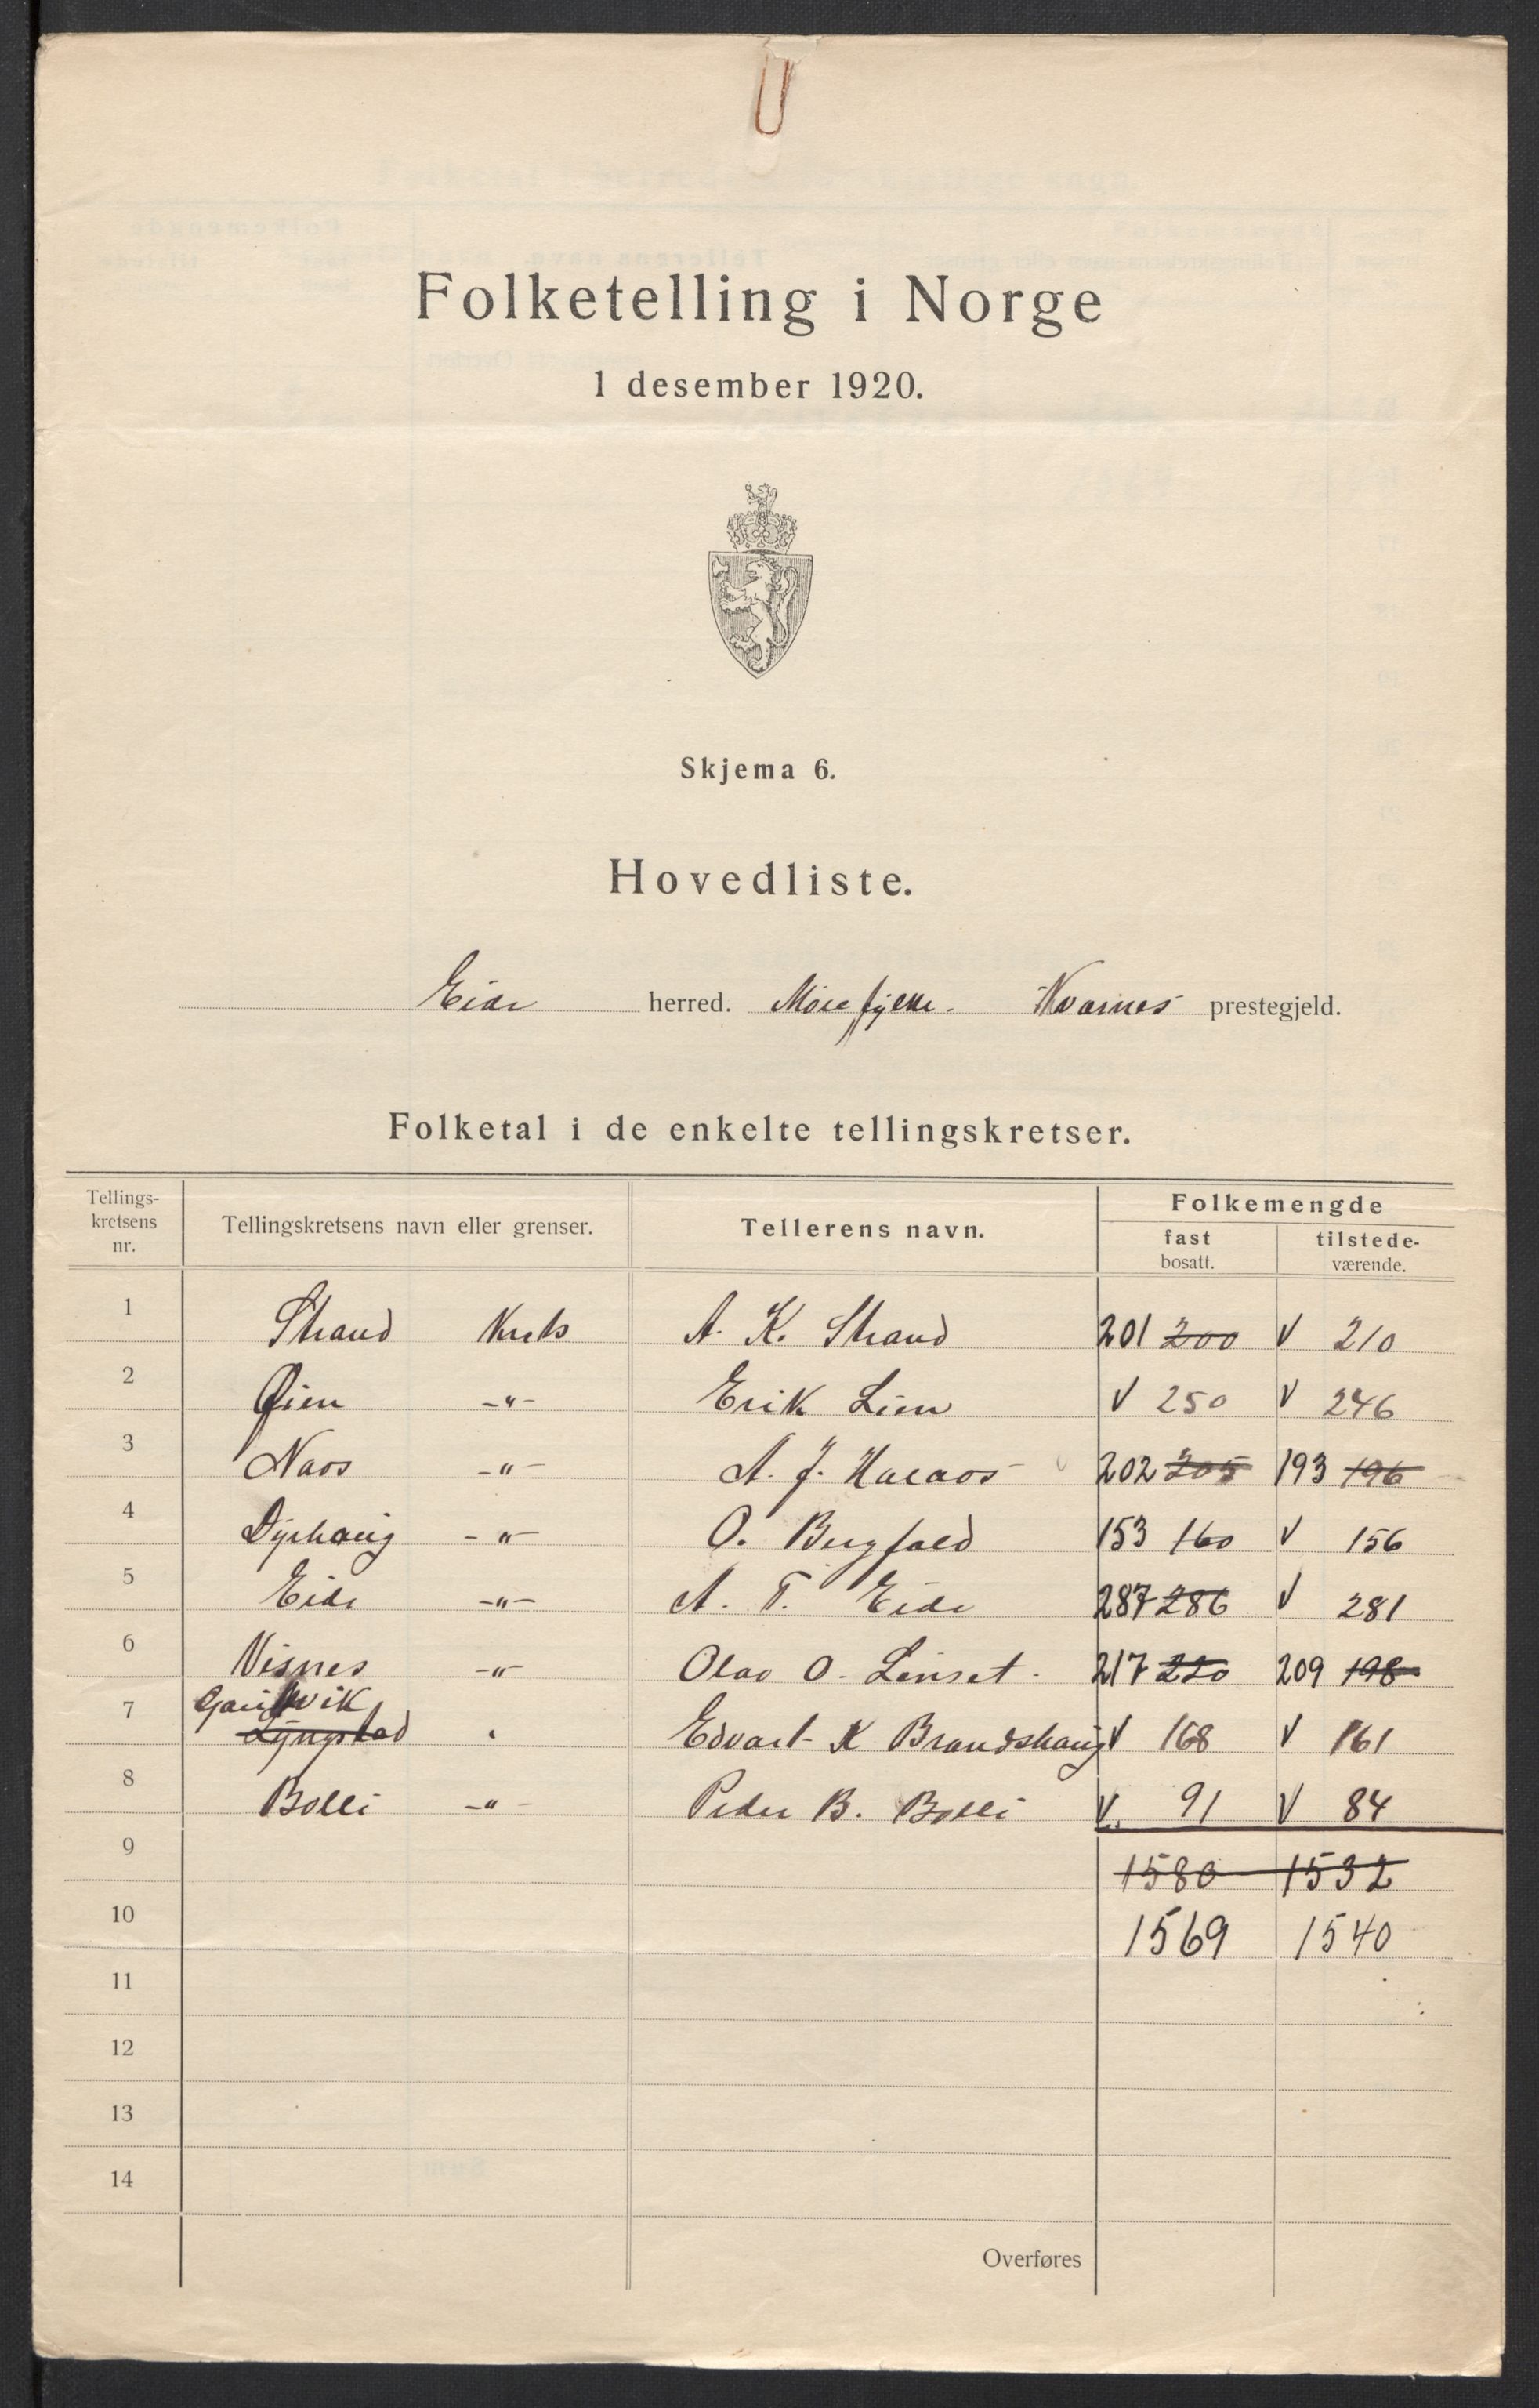 Folketelling i Norge
1 desember 1920.
Skjema 6.
Hovedliste.
Eide herred. Møre fylke. Kvernes prestegjeld.
Folketal i de enkelte tellingskretser.
Tellings-
kretsens
nr.
Tellingskretsens navn eller grenser.
Tellerens navn.
Folkemengde
fast
bosatt.
tilstede-
værende.
1 Strand Krets A. K. Strand 201 200 V 210
2 Øien -"- Erik Lien V 250 V 246
3 Naas -"- A. J. Haraas 202 205 193 196
4 Dyrhaug -"- O. Bergfald 153 160 V 156
5 Eide -"- A. T. Eide 287 286 V 281
6 Visnes -"- Olav O. Linset. 217 220 209 198
Gautvik
7 Lyngstad " Edvart K Brandshaug V 168 V 161
8 Bolli -"- Peder B. Bolli V. 91 V 84
9 1580 1532
10 1569 1540
11
12
13
14
Overføres